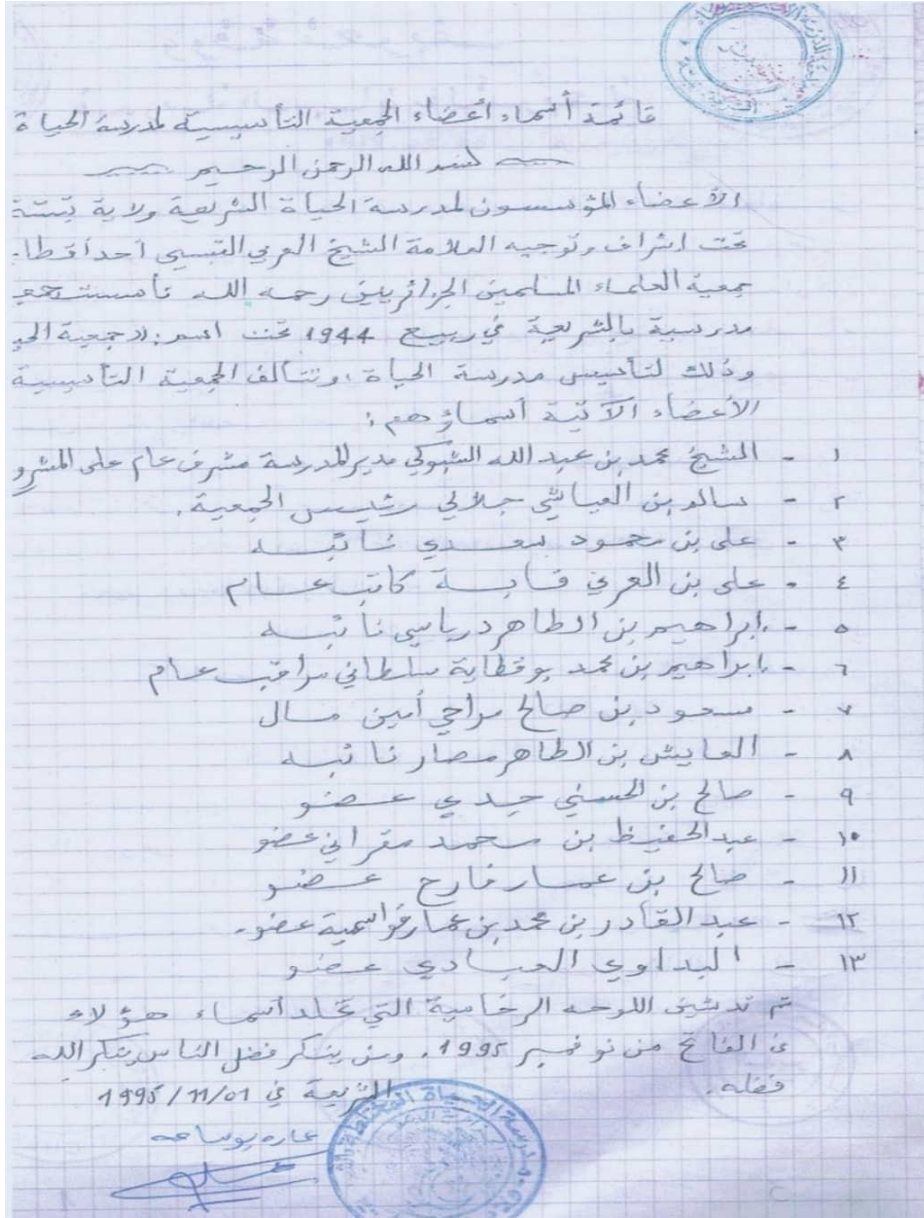 قائمة أسماء أعضاء الجمعية التأسيسية لمدرسة الحياة
بسم الله الرحمن الرحيم
الأعضاء المؤسسون لمدرسة الحياة الشريعة ولاية تبسة
تحت اشراف وتوجيه العلامة الشيخ العربي التبسي أحد أقطا
جمعية العلماء المسلمين الجزائريين رحمه الله تأسست جمع
مدرسية بالشريعة في ربيع 1944 تحت اسم: ((جمعية الحي
وذلك لتأسيس مدرسة الحياة، وتتألف الجمعية التأسيسية
الأعضاء الآتية أسماؤهم:
١ - الشيخ محمد بن عبد الله الشبوكي مدير للمدرسة مشرف عام على المشرو
٢ - سالم بن العياشي جلالي رئيس الجمعية.
٣ - علي بن حمود سعدي نائبه
٤ - علي بن العربي قابة كاتب عام
٥ - إبراهيم بن الطاهر درباسي نائبه
٦ - إبراهيم بن محمد بوقطاية سلطاني مراقب عام
٧ - مسعود بن صالح براجي أمين مال
٨ - العايش بن الطاهر مصار نائبه
٩ - صالح بن الحسني جدي عضو
١٠ - عبد الحفيظ بن محمد مقراني عضو
١١ - صالح بن عمار فارح عضو
١٢ - عبد القادر بن محمد بن عمار قواسمية عضو.
١٣ - البداوي العبادي عضو
تم تدشين اللوحة الرخامية التي تخلد أسماء هؤلاء
في الفاتح من نوفمبر 1995. ومن ينكر فضل الناس ينكر الله
فضله.
الشريعة في 1995/11/01
مدرسة الحياة المختلطة